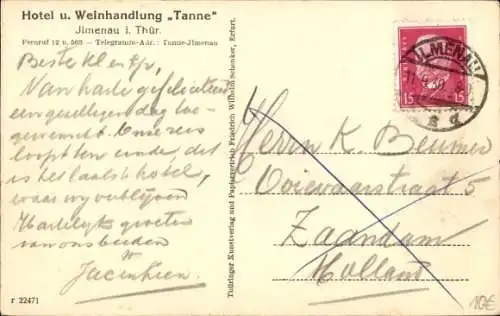 Hotel u. Weinhandlung „Tanne“
Jlmenau i. Thür.
Fernruf 12 u. 569 — Telegramm-Adr.: Tanne-Jlmenau
Beste
Van harte gefeliciteerd
een gezelligen dag toe-
gewenscht. Onze reis
loopt ten einde, dit
is het laatste hotel,
waar wy verblyven
Hartelyke groeten
van ons beiden
r 22471
Thüringer Kunstverlag und Papiervertrieb Friedrich Wilhelm Schenker, Erfurt.
ILMENAU
15 15
Heeren K. Beumer
5
Zaandam
Holland
10€